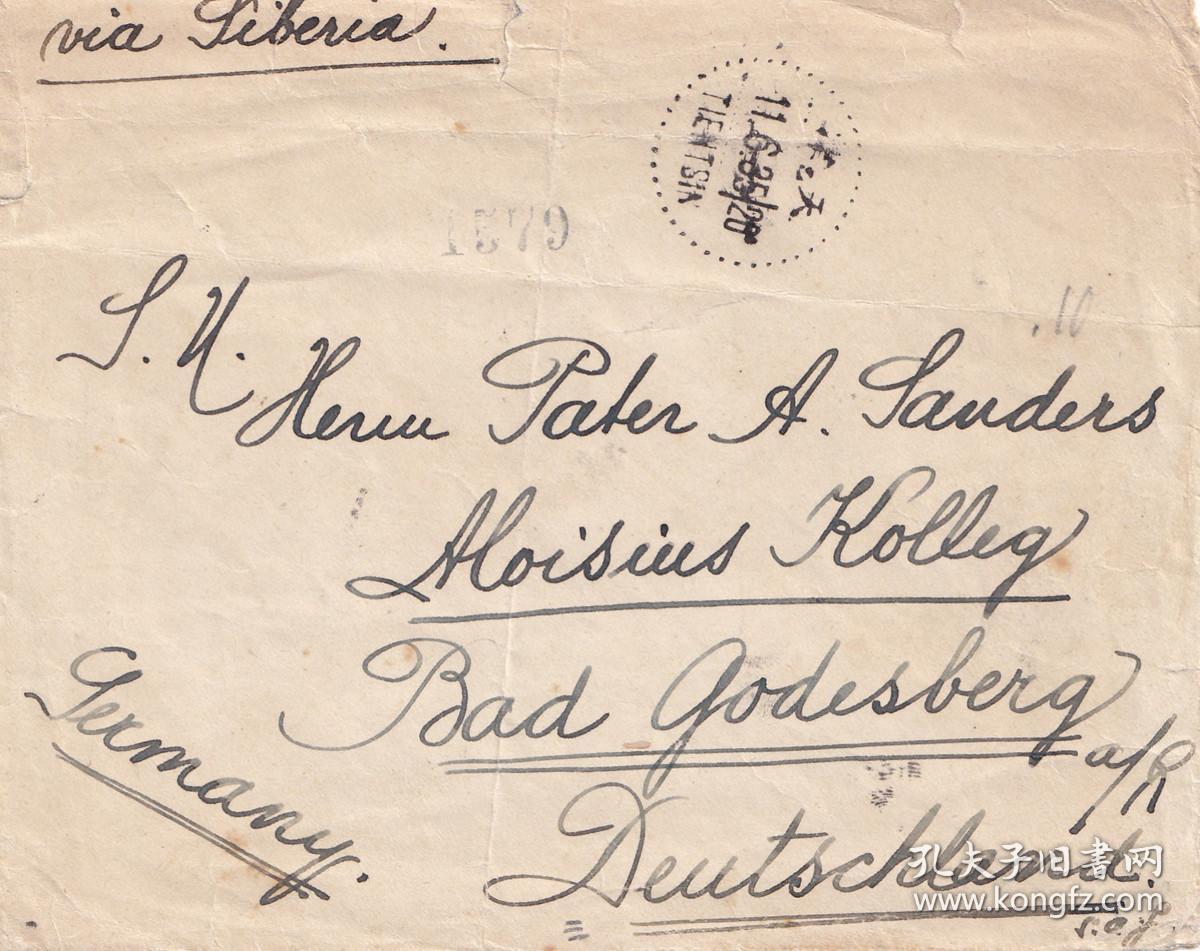 via Siberia.
11.6.25/20
TIENTSIN
1579
S. H.
Herrn Pater A. Sanders
Aloisius Kolleg
Bad Godesberg
a/R
Germany.
Deutschland.
孔夫子旧书网
www.kongfz.com